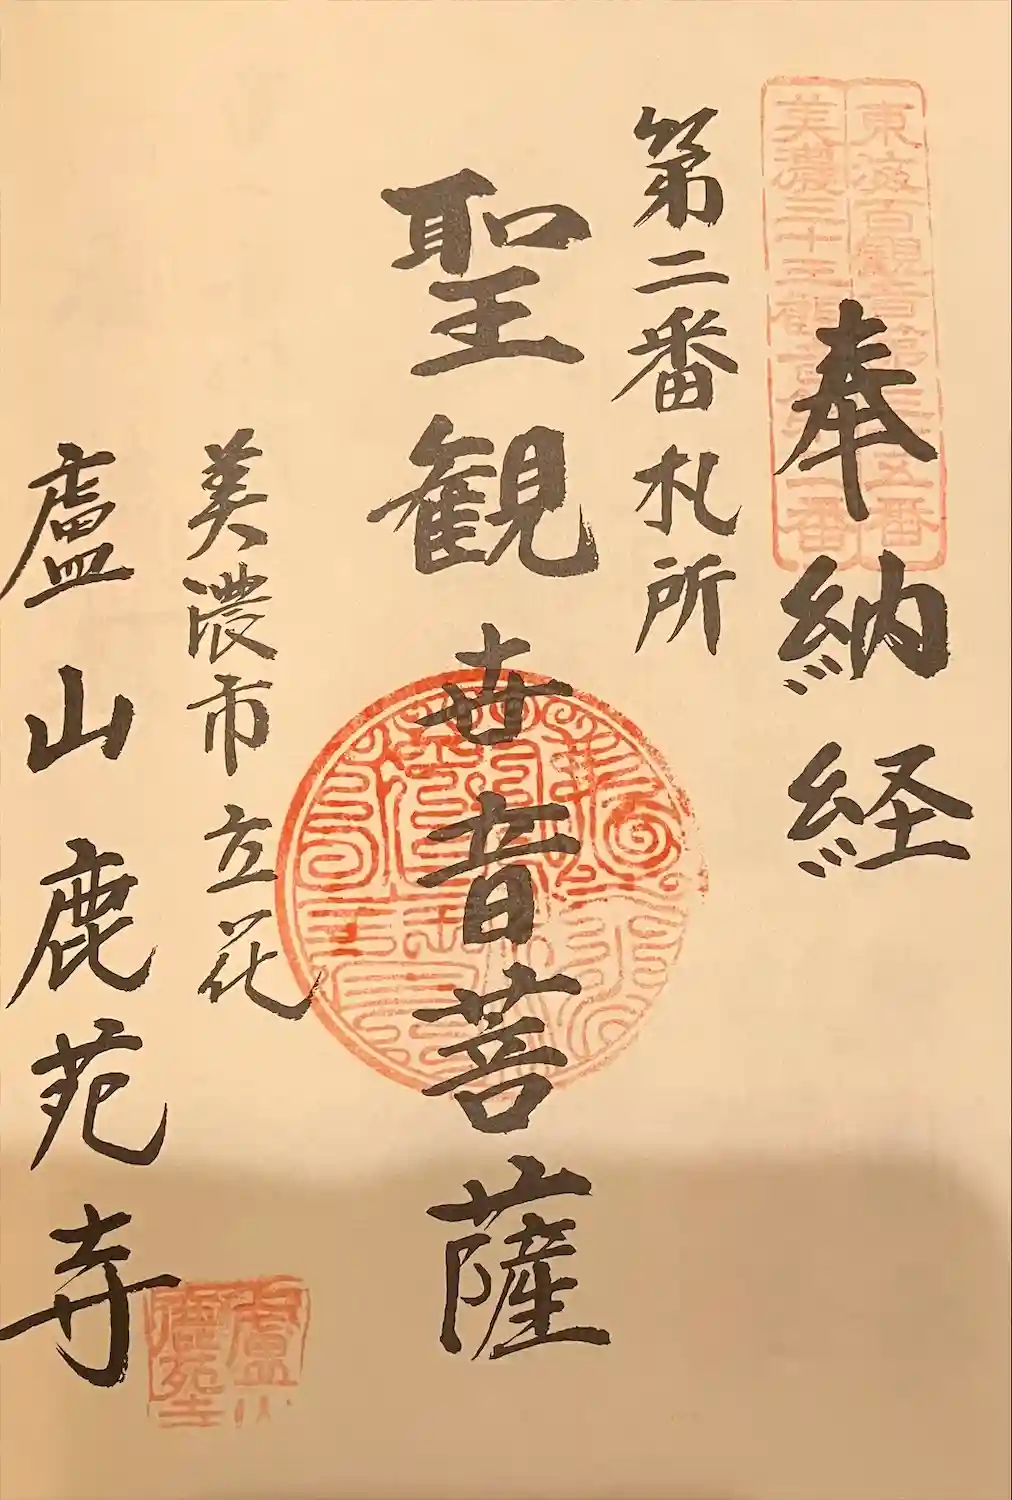 奉納経
東海百観音第三十五番
美濃三十三観音第二番
第二番札所
聖観世音菩薩
美濃市立花
盧山鹿苑寺
盧山
鹿苑寺